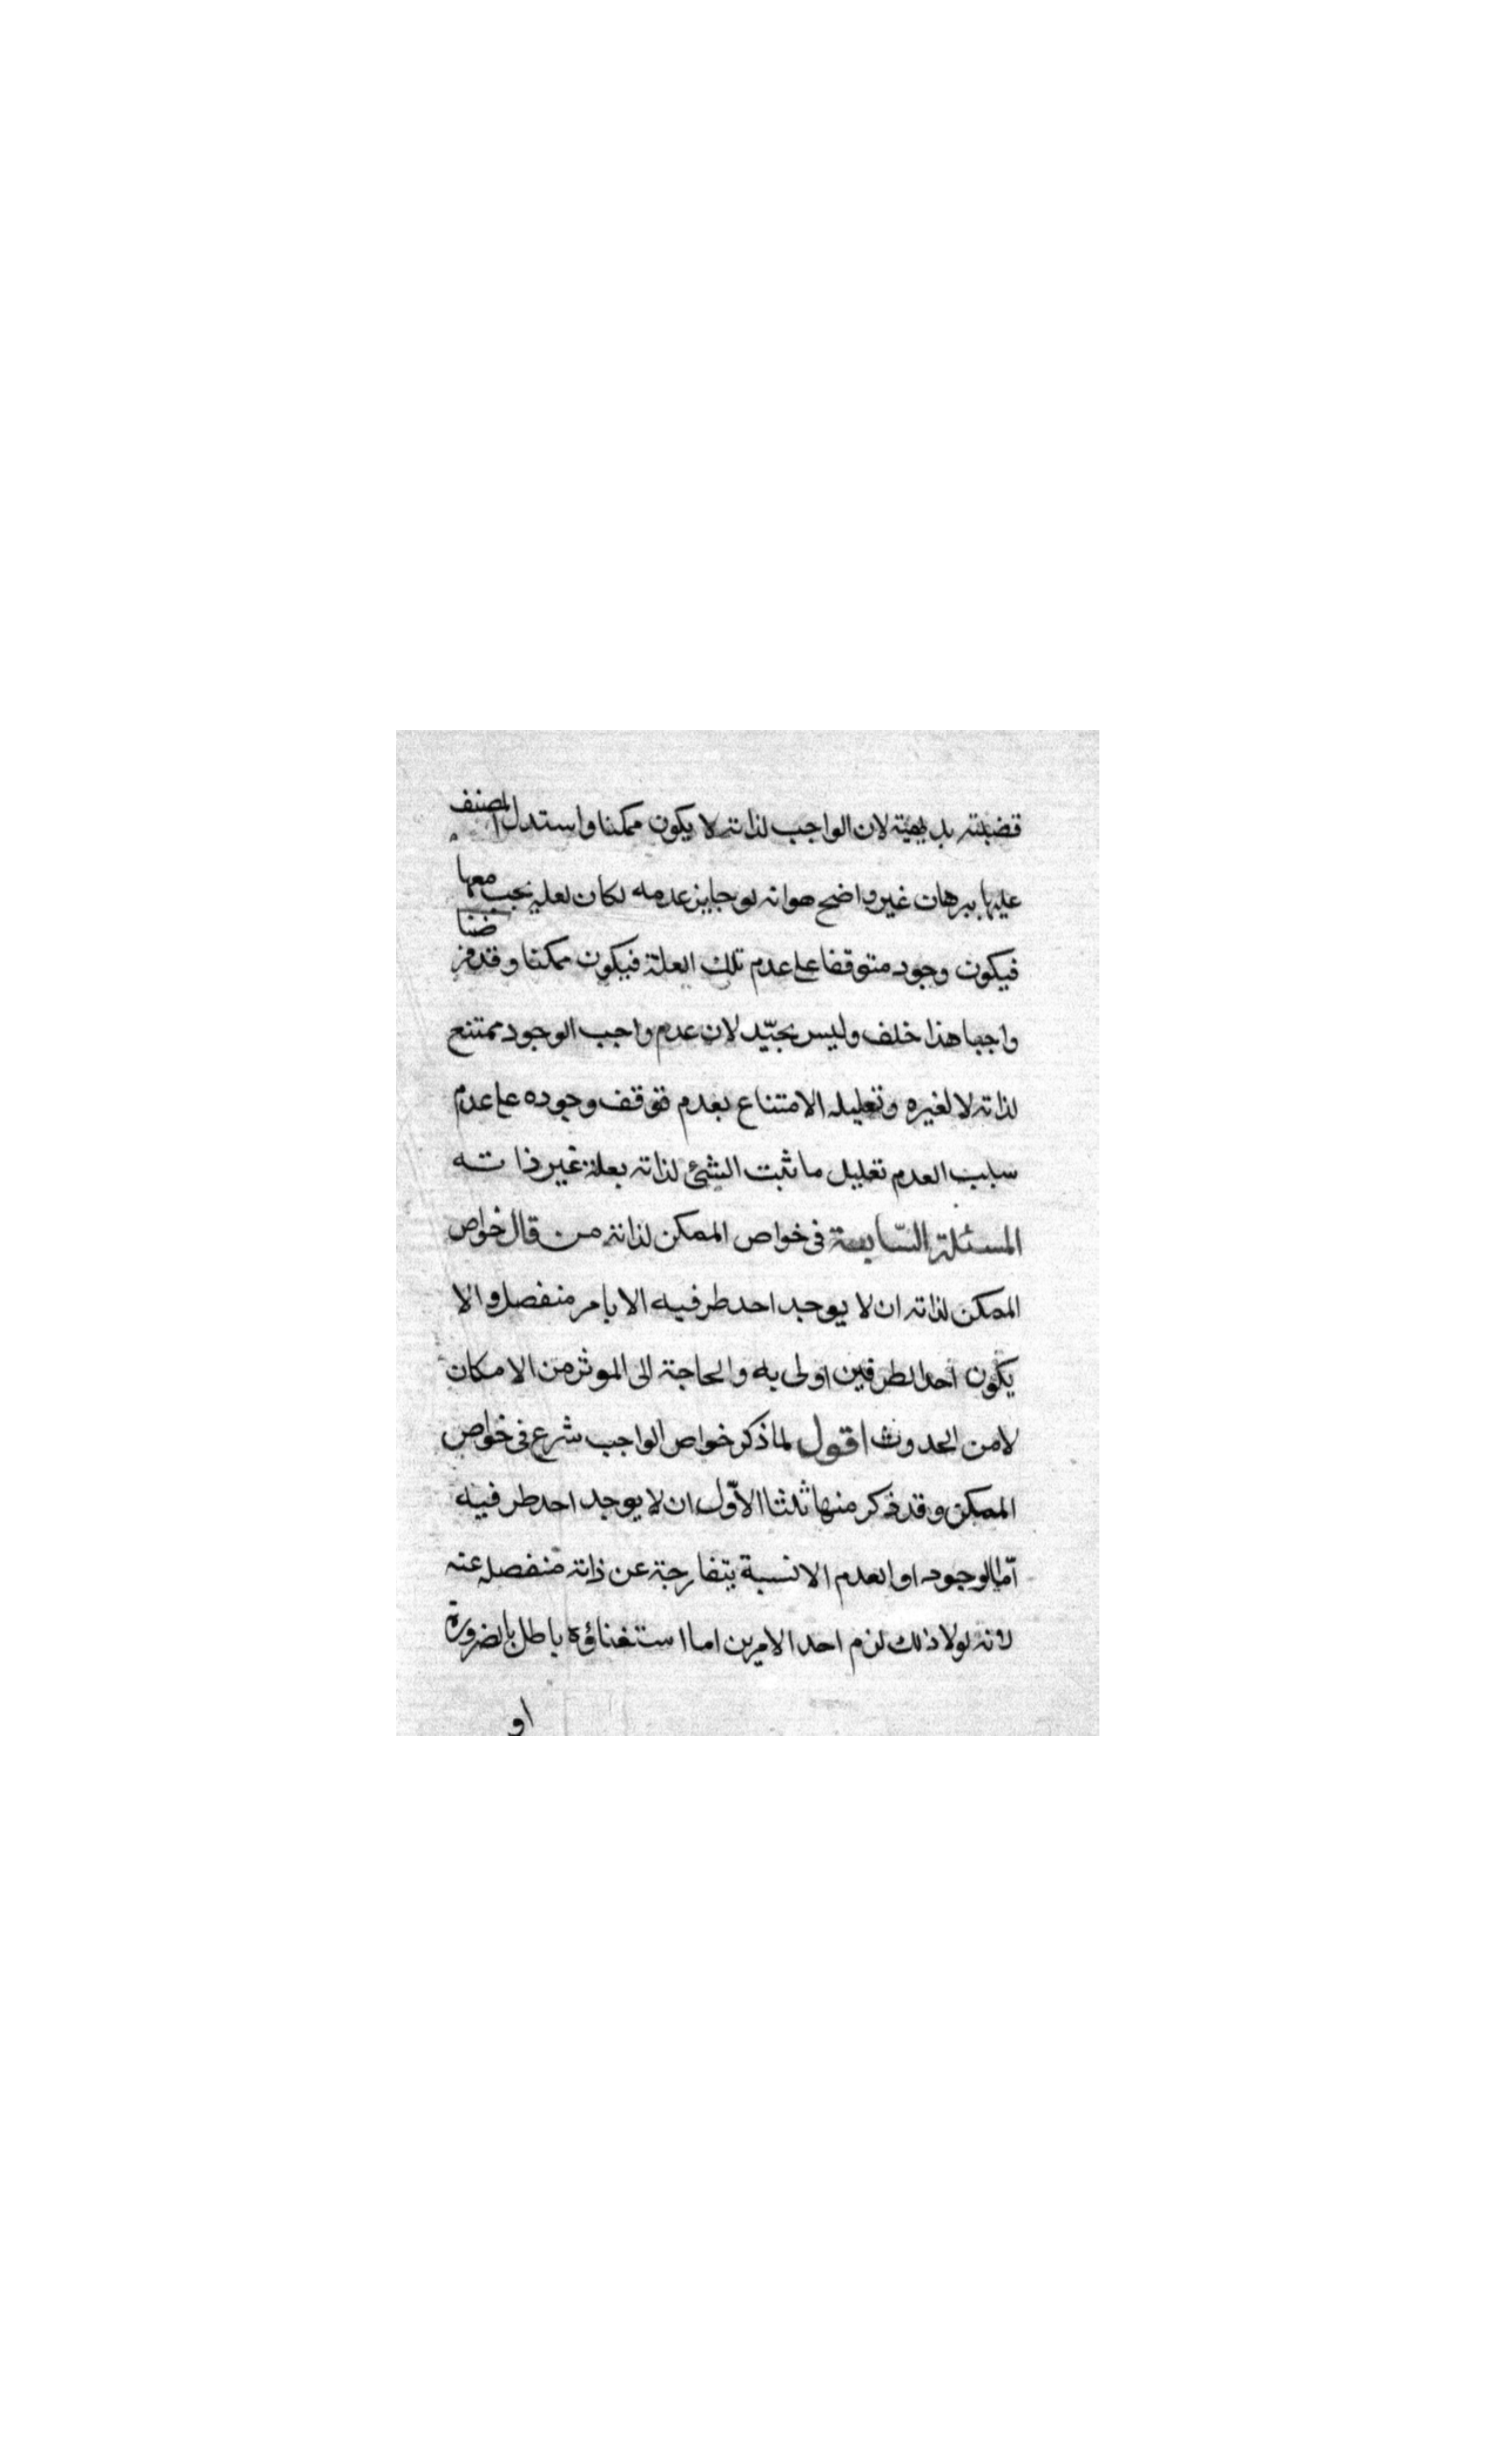 قضيته بديهية لان الواجب لذاته لا يكون ممكنا واستدل المصنف
عليها ببرهان غير واضح هو انه لو جايز عدمه لكان لعليه نجب معها
فيكون وجود متوقفا على عدم تلك العلة فيكون ممكنا وقد فرضنا
واجبا هذا خلف وليس بجيّد لان عدم واجب الوجود ممتنع
لذاته لا لغيره وتعليله الامتناع بعدم توقف وجوده على عدم
سبب العدم تعليل ما ثبت الشئ لذاته بعلة غير ذاته
المسئلة السّابعة فى خواص الممكن لذاته من قال خواص
الممكن لذاته ان لا يوجد احد طرفيه الا بامر منفصل والا
يكون احد الطرفين اولى به والحاجة الى الموثر من الامكان
لا من الحدوث اقول لما ذكر خواص الواجب شرع فى خواص
الممكن وقد ذكر منها ثلثا الاوّل ان لا يوجد احد طرفيه
امّا الوجود او العدم الا نسبة عن ذاته منفصله عنه
لانه لولا ذلك لزم احد الامرين اما استغناؤه باطل بالضرورة
او